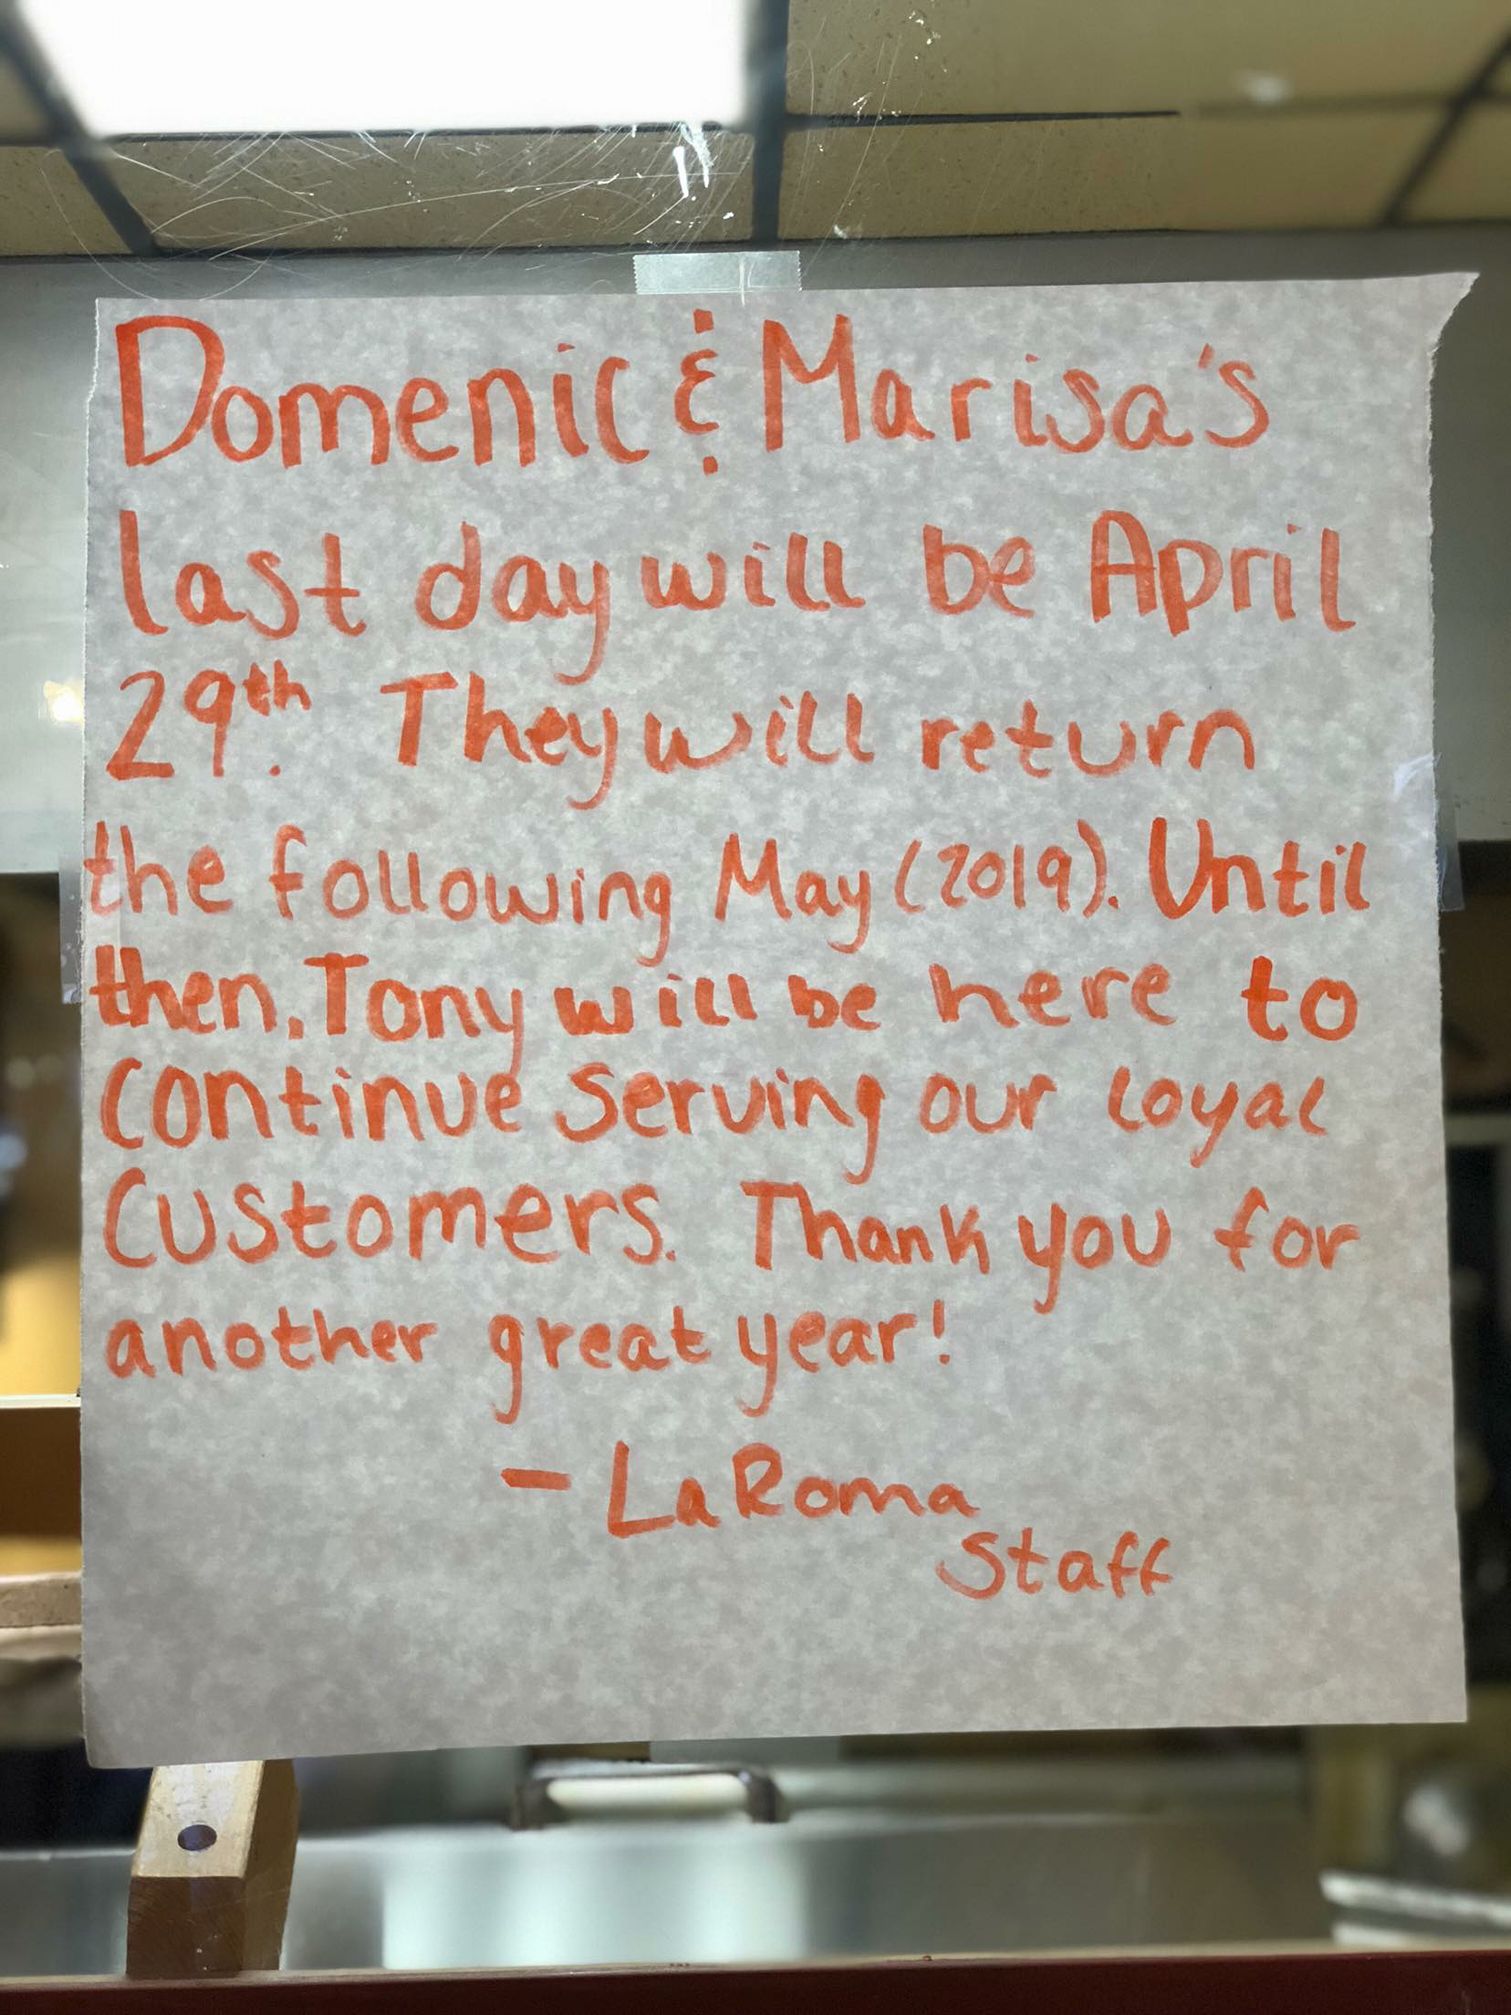 Domenic & Marisa's
last day will be April
29th. They will return
the following May (2019). Until
then, Tony will be here to
continue serving our loyal
customers. Thank you for
another great year!
- LaRoma
Staff